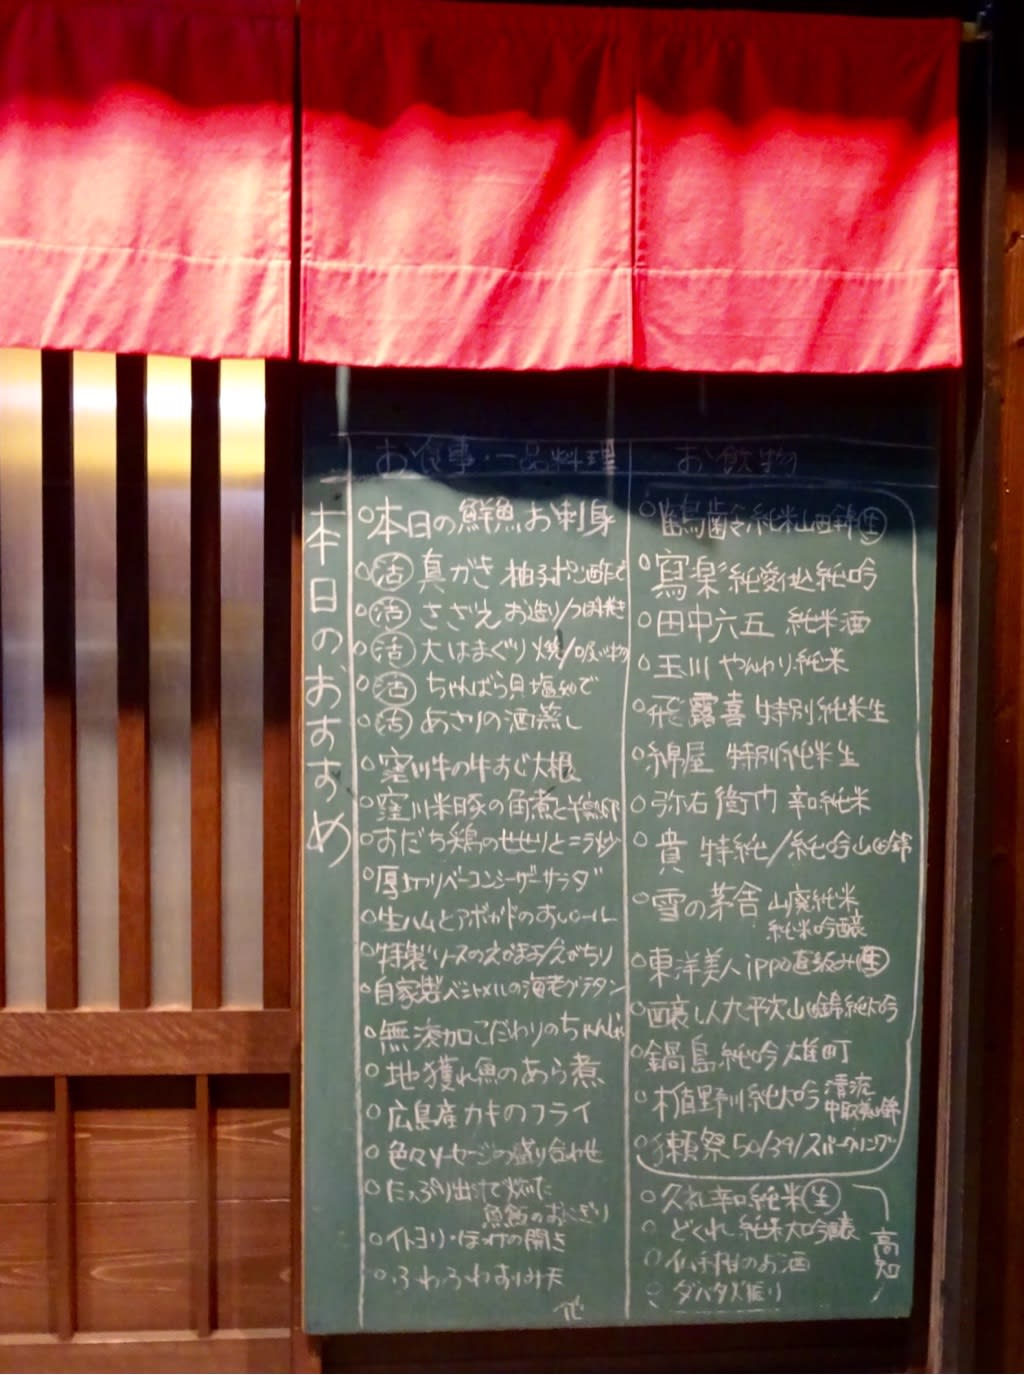 本日のおすすめ
お食事・一品料理
○本日の鮮魚お刺身
○活 真がき 柚子ポン酢で
○活 さざえ お造り/つぼ焼き
○活 大はまぐり 焼/吸い物
○活 ちゃんばら貝塩ゆで
○活 あさりの酒蒸し
○窪川牛の牛すじ大根
○窪川米豚の角煮と半熟卵
○すだち鶏のせせりとニラ炒
○厚切りベーコンシーザーサラダ
○生ハムとアボカドの
○特製ソースの
○自家製ベシャメルの海老グラタン
○無添加こだわりのちゃんじゃ
○地獲れ魚のあら煮
○広島産カキのフライ
○色々ソーセージの盛り合わせ
○たっぷり出汁で炊いた
魚飯のおにぎり
○イトヨリ・ほっけの開き
○ふわふわすりみ天
他
お飲物
○鶴齢 純米山田錦 生
○寫楽 純愛仕込純吟
○田中六五 純米酒
○玉川 やんわり純米
○飛露喜 特別純米生
○綿屋 特別純米生
○弥右衛門 辛口純米
○貴 特純/純吟山田錦
○雪の茅舎 山廃純米
純米吟醸
○東洋美人 ippo直汲み 生
○醸し人九平次山田錦純大吟
○鍋島純吟 雄町
○楯野川純大吟 清流
中取り美山錦
○獺祭50/39/スパークリング
○久礼辛口純米 生
○どくれ 純米大吟醸
○仏手柑のお酒
○ダバダ火振り
高知